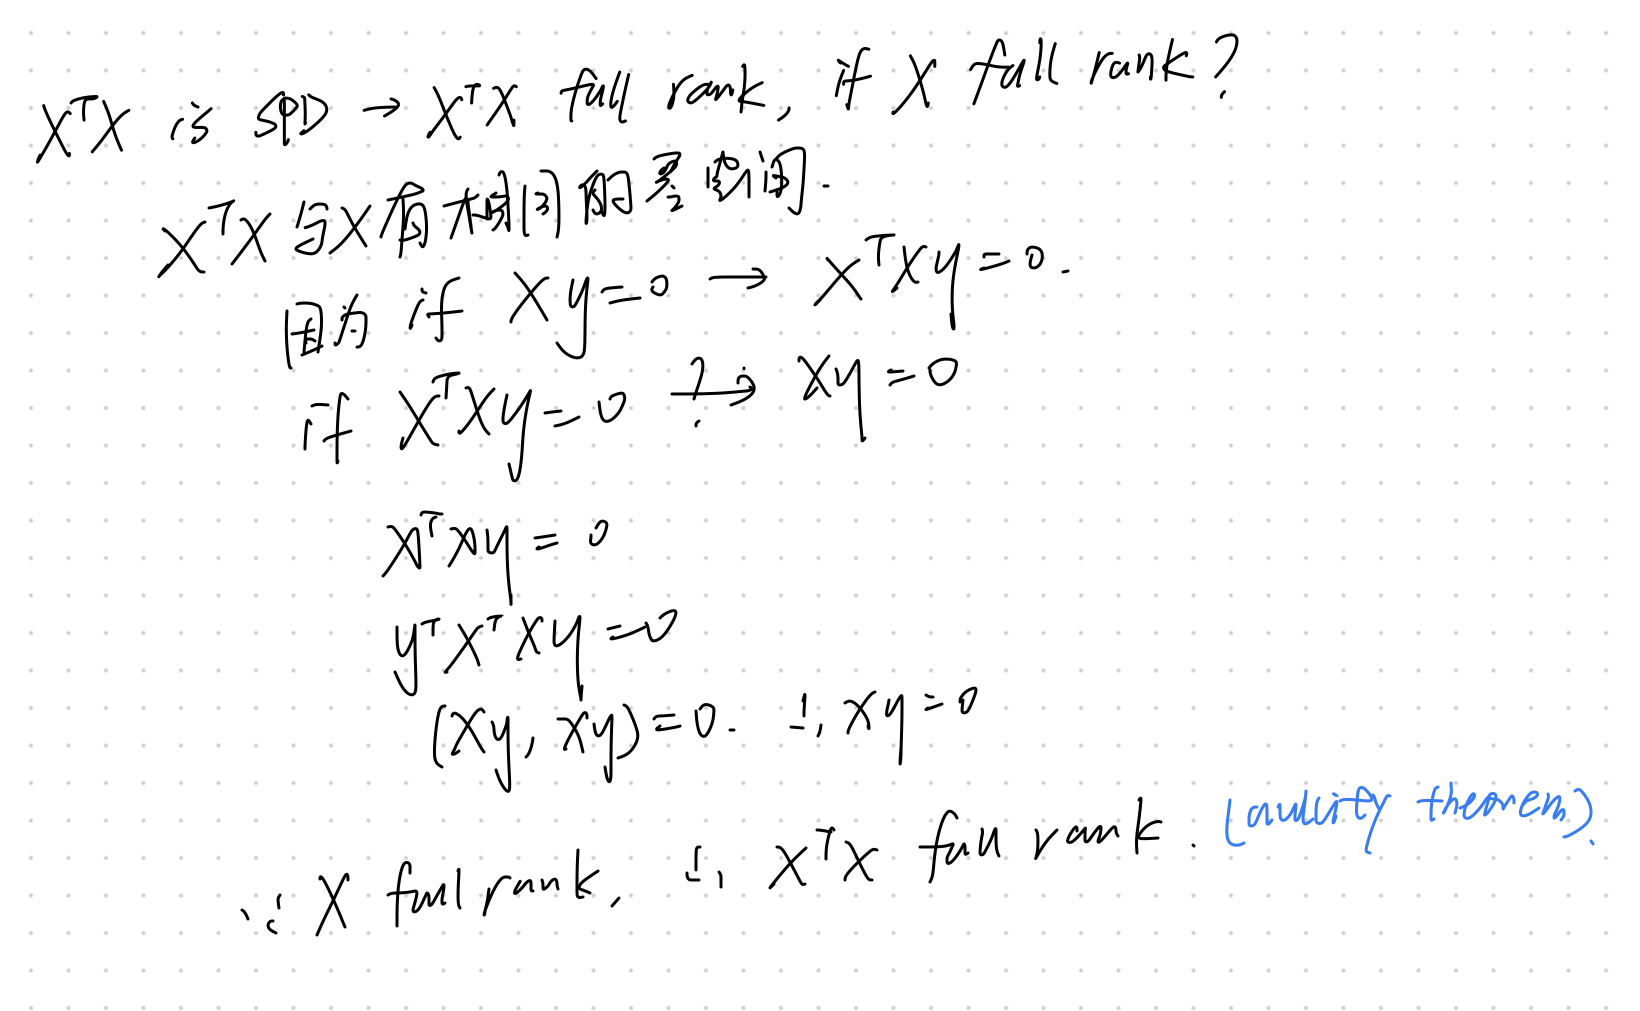 XᵀX is SPD → XᵀX full rank, if X full rank?
XᵀX 与X有相同的零空间.
因为 if Xy=0 → XᵀXy=0.
if XᵀXy=0 →? Xy=0
XᵀXy=0
yᵀXᵀXy=0
(Xy, Xy)=0. ∴ Xy=0
∵ X full rank, ∴ XᵀX full rank. (nullity theorem).